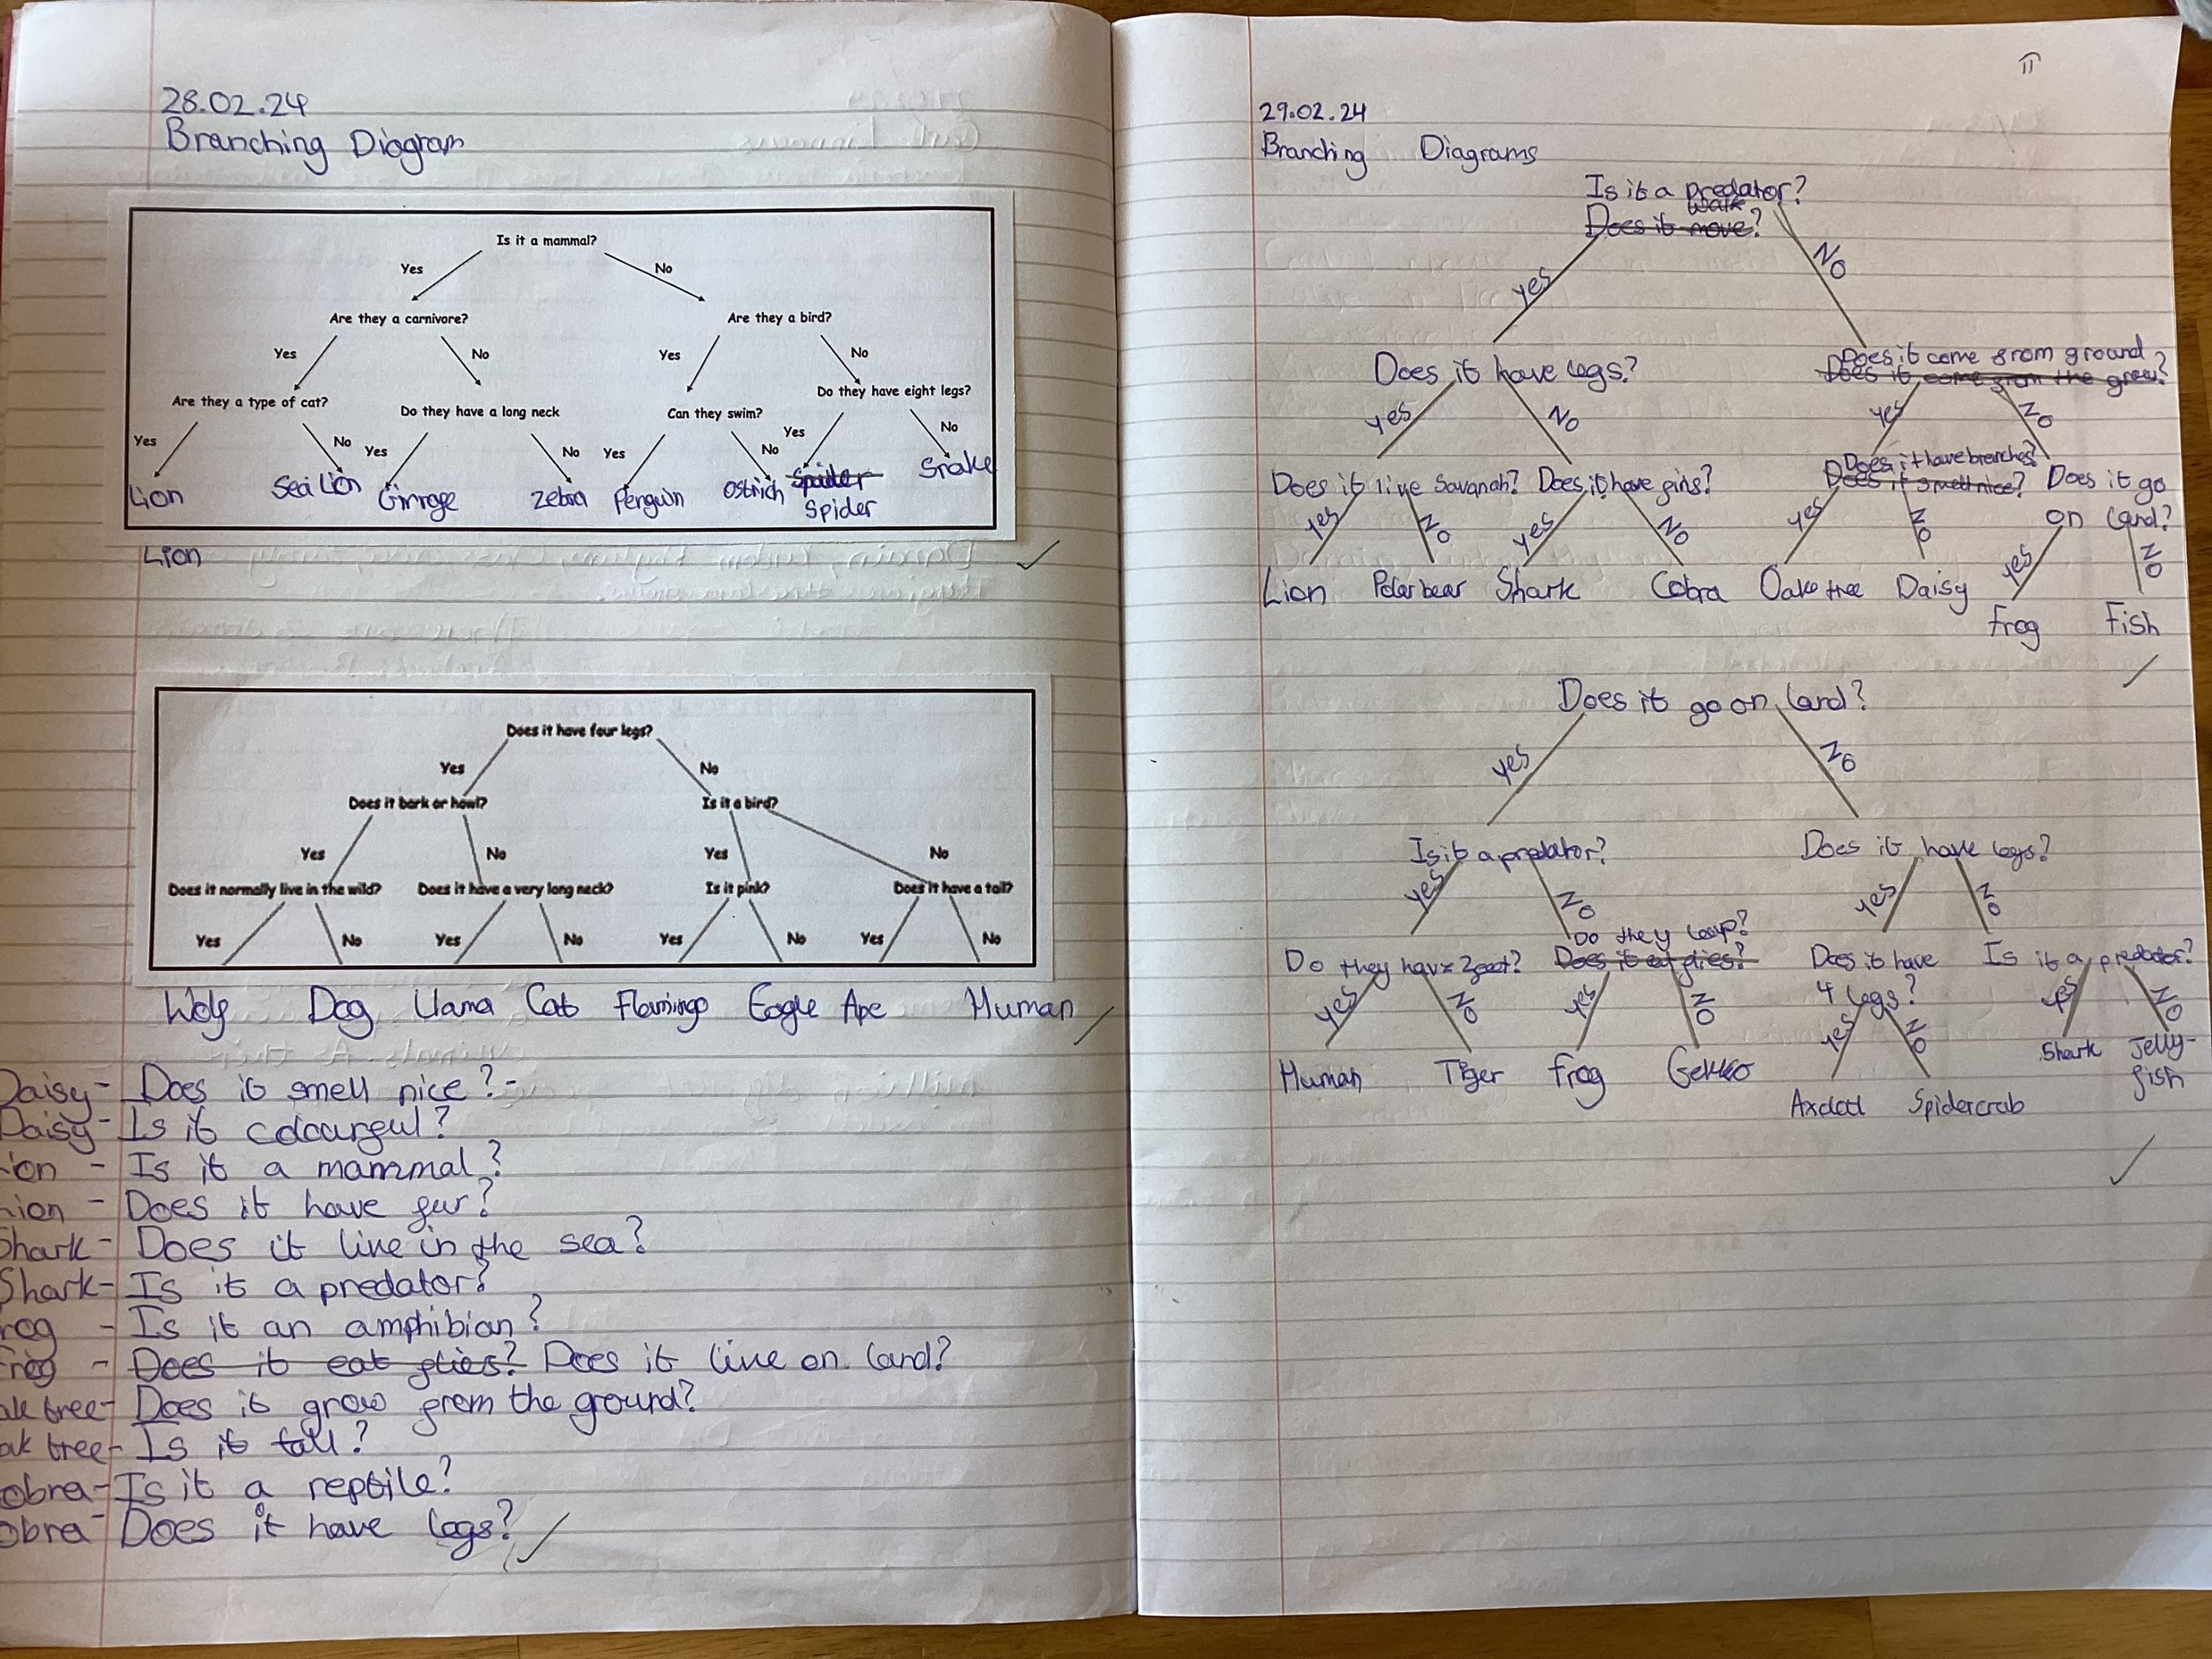 28.02.24
Branching Diagram
Is it a mammal?
Yes No
Are they a carnivore? Are they a bird?
Yes No Yes No
Are they a type of cat? Do they have a long neck Can they swim? Do they have eight legs?
Yes No Yes No Yes No Yes No
Lion Sea Lion Girrage Zebra Penguin Ostrich Spider Snake
Spider
Lion
Does it have four legs?
Yes No
Does it bark or howl? Is it a bird?
Yes No Yes No
Does it normally live in the wild? Does it have a very long neck? Is it pink? Does it have a tail?
Yes No Yes No Yes No Yes No
Wolf Dog Llama Cat Flamingo Eagle Ape Human
Daisy- Does it smell nice?-
Daisy- Is it colourful?
ion - Is it a mammal?
Lion - Does it have fur?
Shark- Does it live in the sea?
Shark- Is it a predator?
rog - Is it an amphibian?
Frog - Does it eat flies? Does it live on land?
ak tree- Does it grow from the ground?
oak tree- Is it tall?
obra- Is it a reptile?
obra- Does it have legs?
11
29.02.24
Branching Diagrams
Is it a predator?
walk
Does it move?
yes No
Does it have legs? Does it come from ground
Does it come from the grow?
yes No yes No
Does it live Savanah? Does it have fins? Does it have branches? Does it go
Does it smell nice? on land?
yes No yes No yes No yes No
Lion Polar bear Shark Cobra Oake tree Daisy Frog Fish
Does it go on land?
yes No
Is it a predator? Does it have legs?
yes No yes No
Do they leap?
Do they have 2 feet? Does it eat flies? Does it have Is it a predator?
4 legs?
yes No yes No yes No yes No
Human Tiger Frog Gekko Axolotl Spidercrab Shark Jelly-
fish